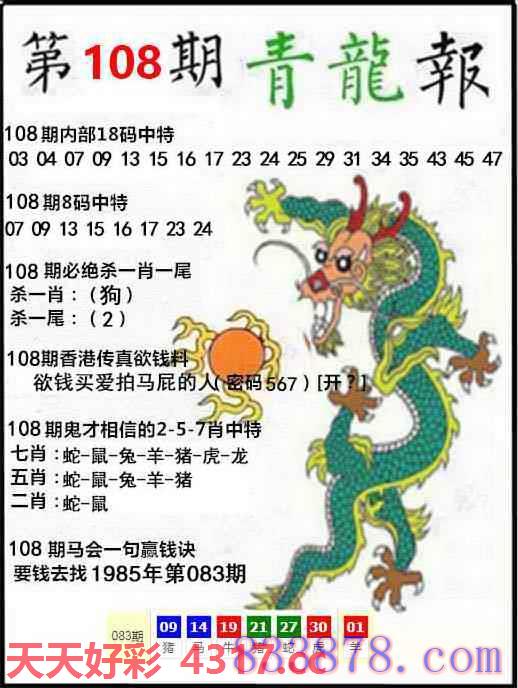 第108期青龍報
108期内部18码中特
03 04 07 09 13 15 16 17 23 24 25 29 31 34 35 43 45 47
108期8码中特
07 09 13 15 16 17 23 24
108期必绝杀一肖一尾
杀一肖:(狗)
杀一尾:(2)
108期香港传真欲钱料
欲钱买爱拍马屁的人(密码567)[开?]
108期鬼才相信的2-5-7肖中特
七肖:蛇-鼠-兔-羊-猪-虎-龙
五肖:蛇-鼠-兔-羊-猪
二肖:蛇-鼠
108期马会一句赢钱诀
要钱去找1985年第083期
083期 09 14 19 21 27 30 01
猪 马 牛 猪 蛇 虎 羊
天天好彩 4317.cc
838878.com